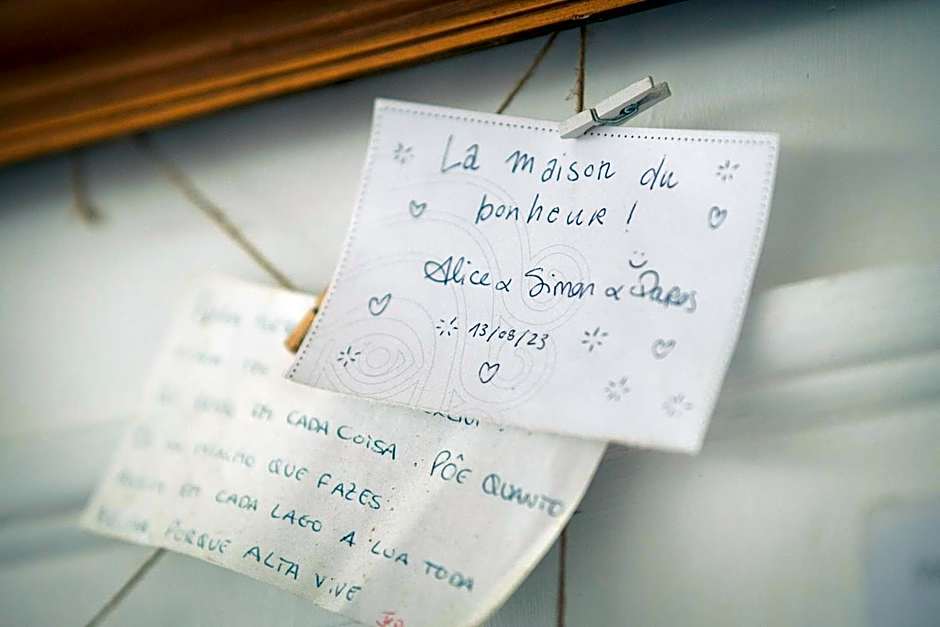 La maison du
bonheur !
Alice & Simon &
13/08/23
EM CADA COISA. PÕE QUANTO
QUE FAZES.
EM CADA LAGO A LUA TODA
PORQUE ALTA VIVE